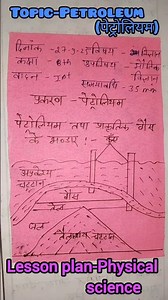 Topic-Petroleum
(पेट्रोलियम)
दिनांक - 27.9.23 विषय - विज्ञान
कक्षा - 8th उपविषय - भौतिक विज्ञान
वादन - Ist समयावधि - 35 min
प्रकरण - पेट्रोलियम
पेट्रोलियम तथा प्राकृतिक गैस
के भण्डार :-
कुआँ
चट्टान
गैस
तेल
जल
चट्टान
Lesson plan-Physical
science